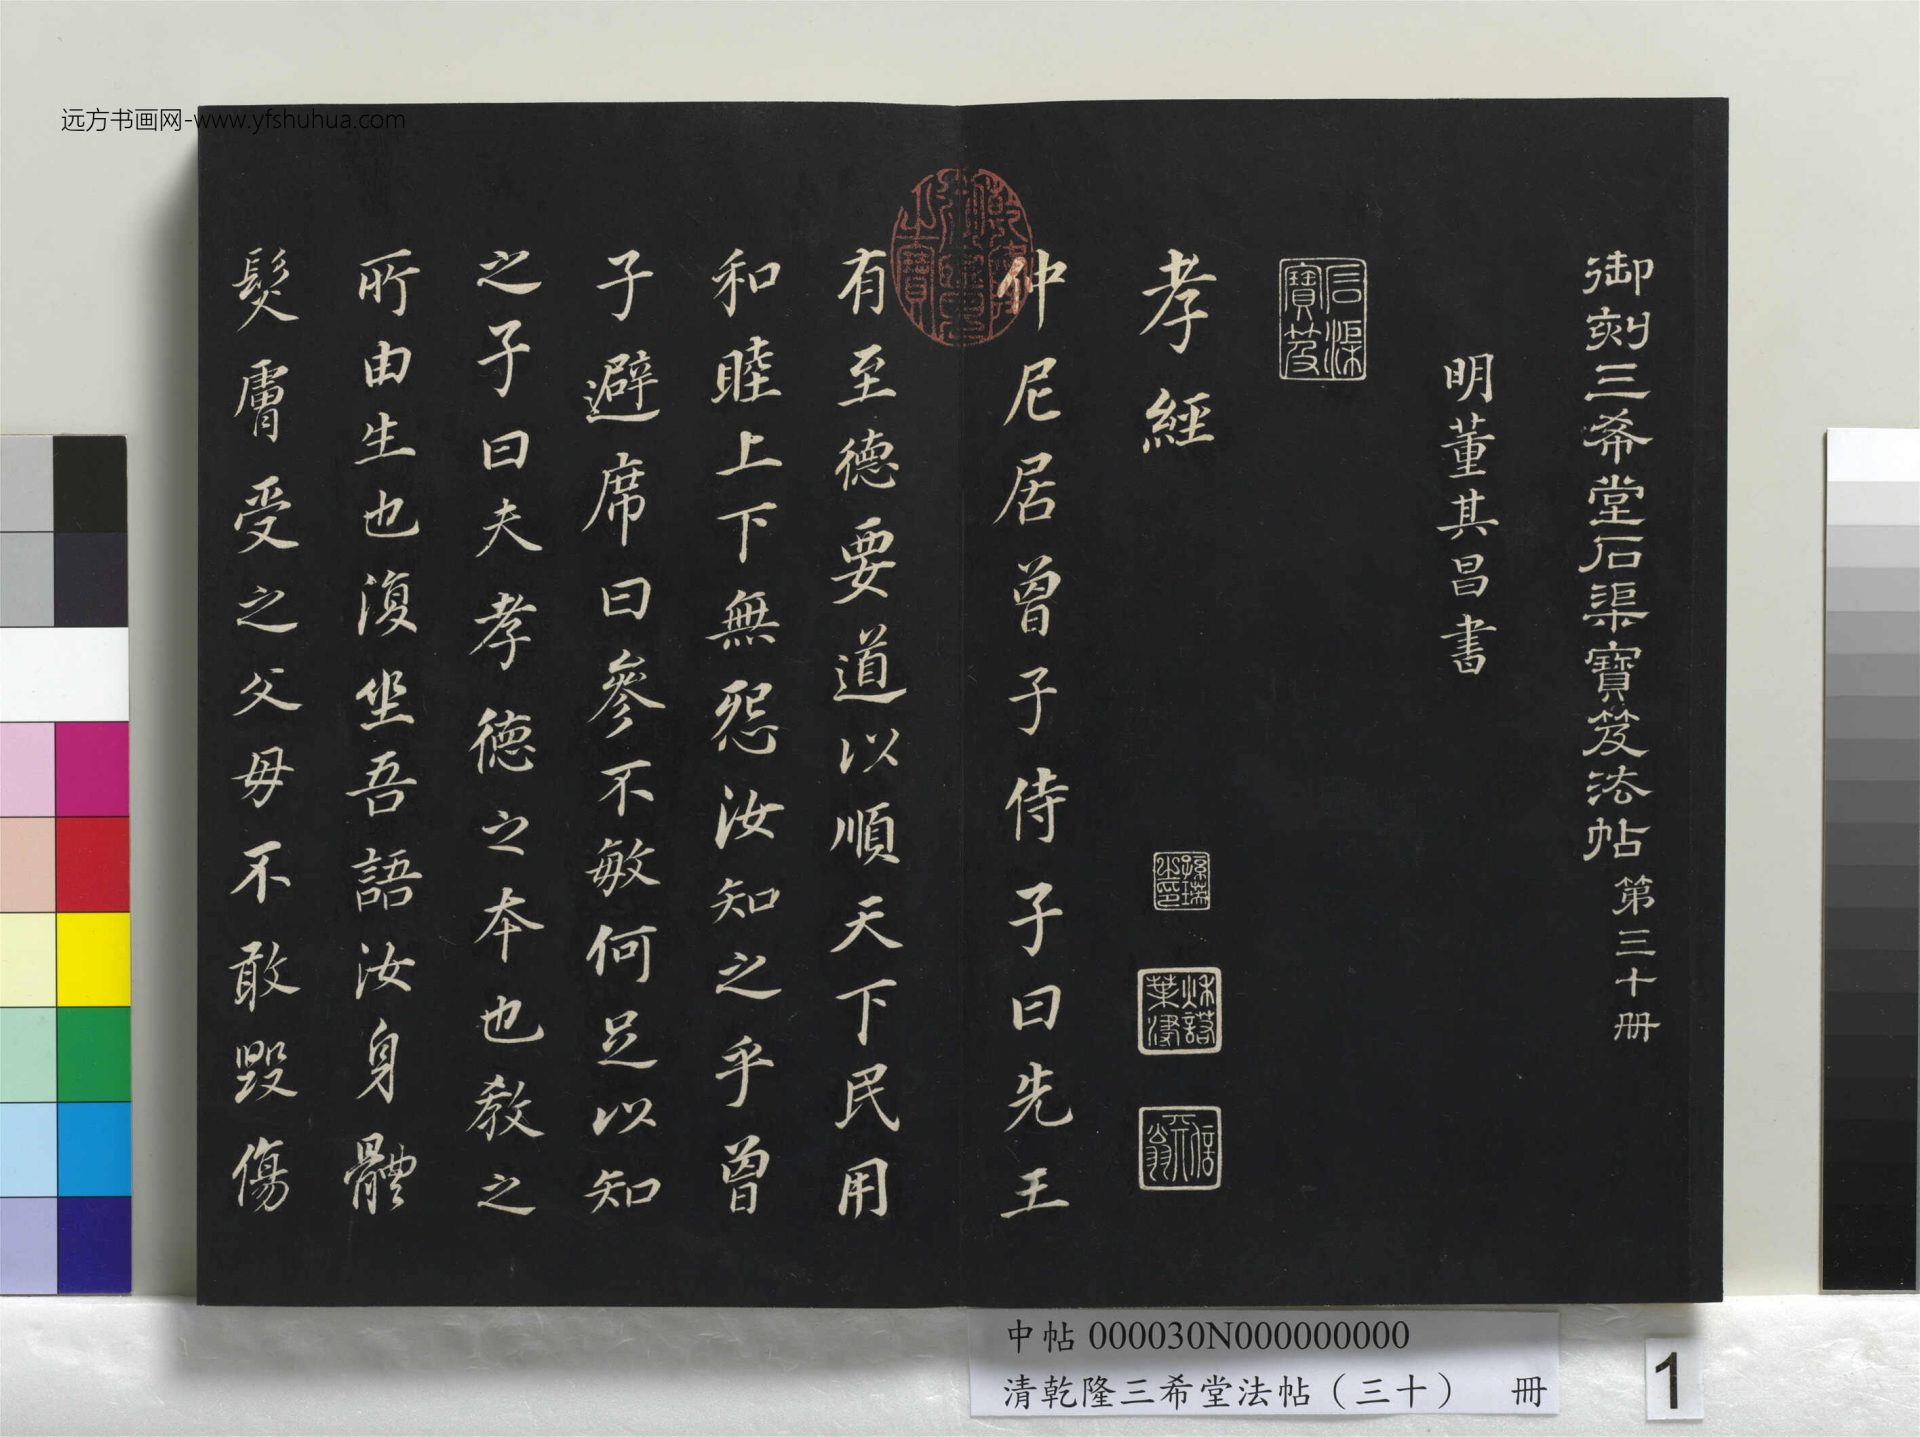 远方书画网-www.yfshuhua.com
御刻三希堂石渠寶笈法帖第三十册
明董其昌書
石渠寶笈
孝經
仲尼居曾子侍子曰先王
有至德要道以順天下民用
和睦上下無怨汝知之乎曾
子避席曰參不敏何足以知
之子曰夫孝德之本也教之
所由生也復坐吾語汝身體
髮膚受之父母不敢毀傷
乾隆御覽之寶
中帖 000030N000000000
清乾隆三希堂法帖（三十） 冊
1